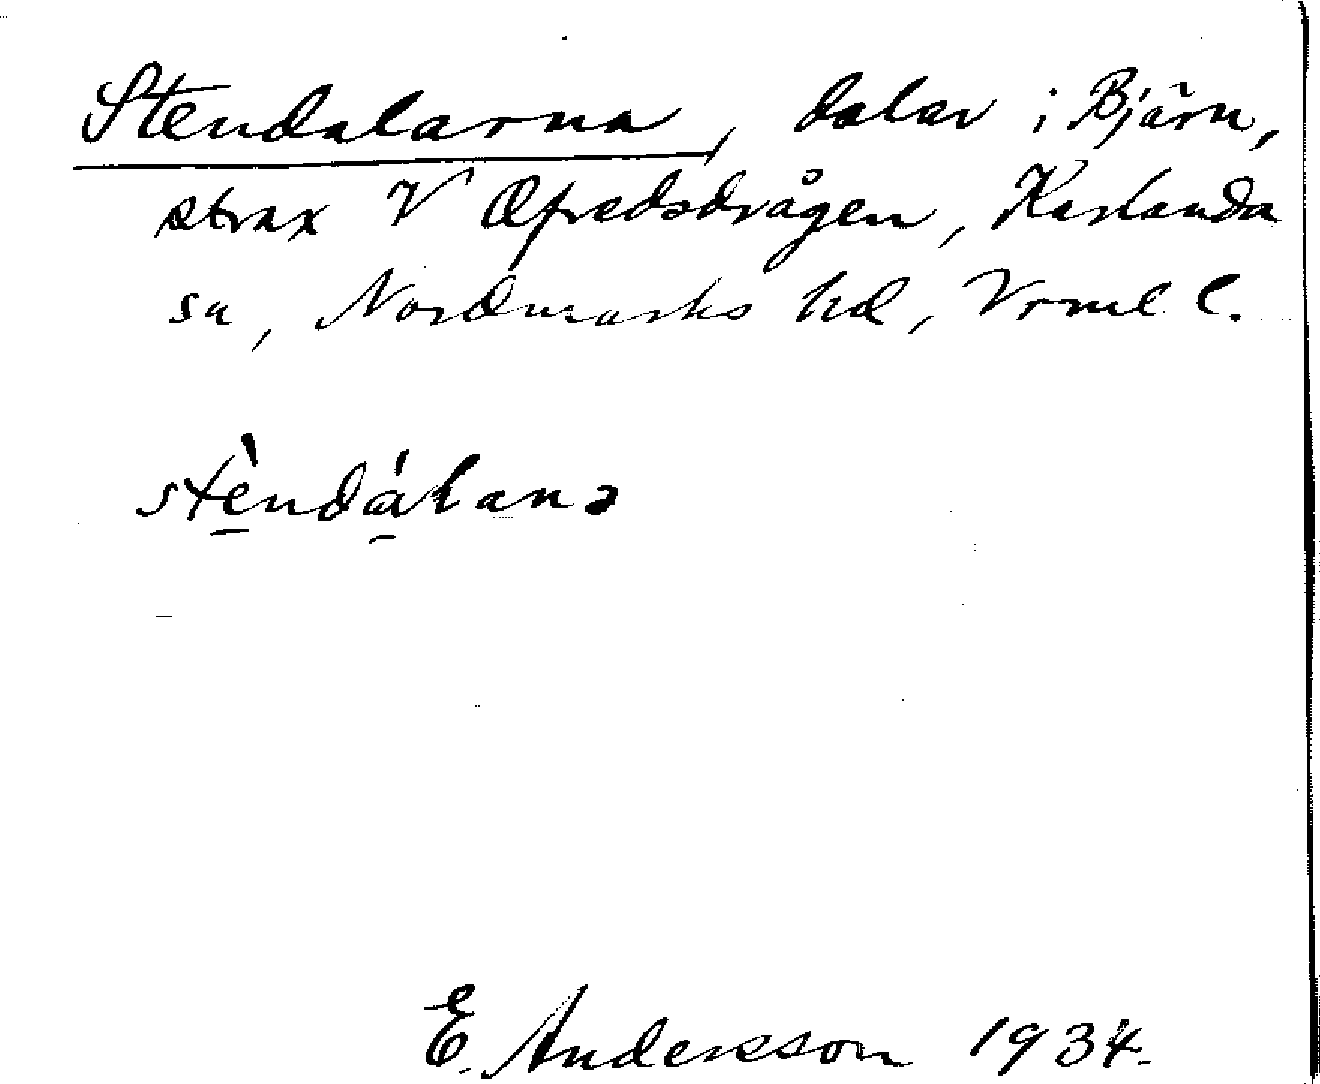 Stendalarna, dalar i Bjärn,
strax V Æfredsdrågen, Karlanda
sn, Nordmarks hd, Vrml l.
stèndálanə
E. Andersson 1934.